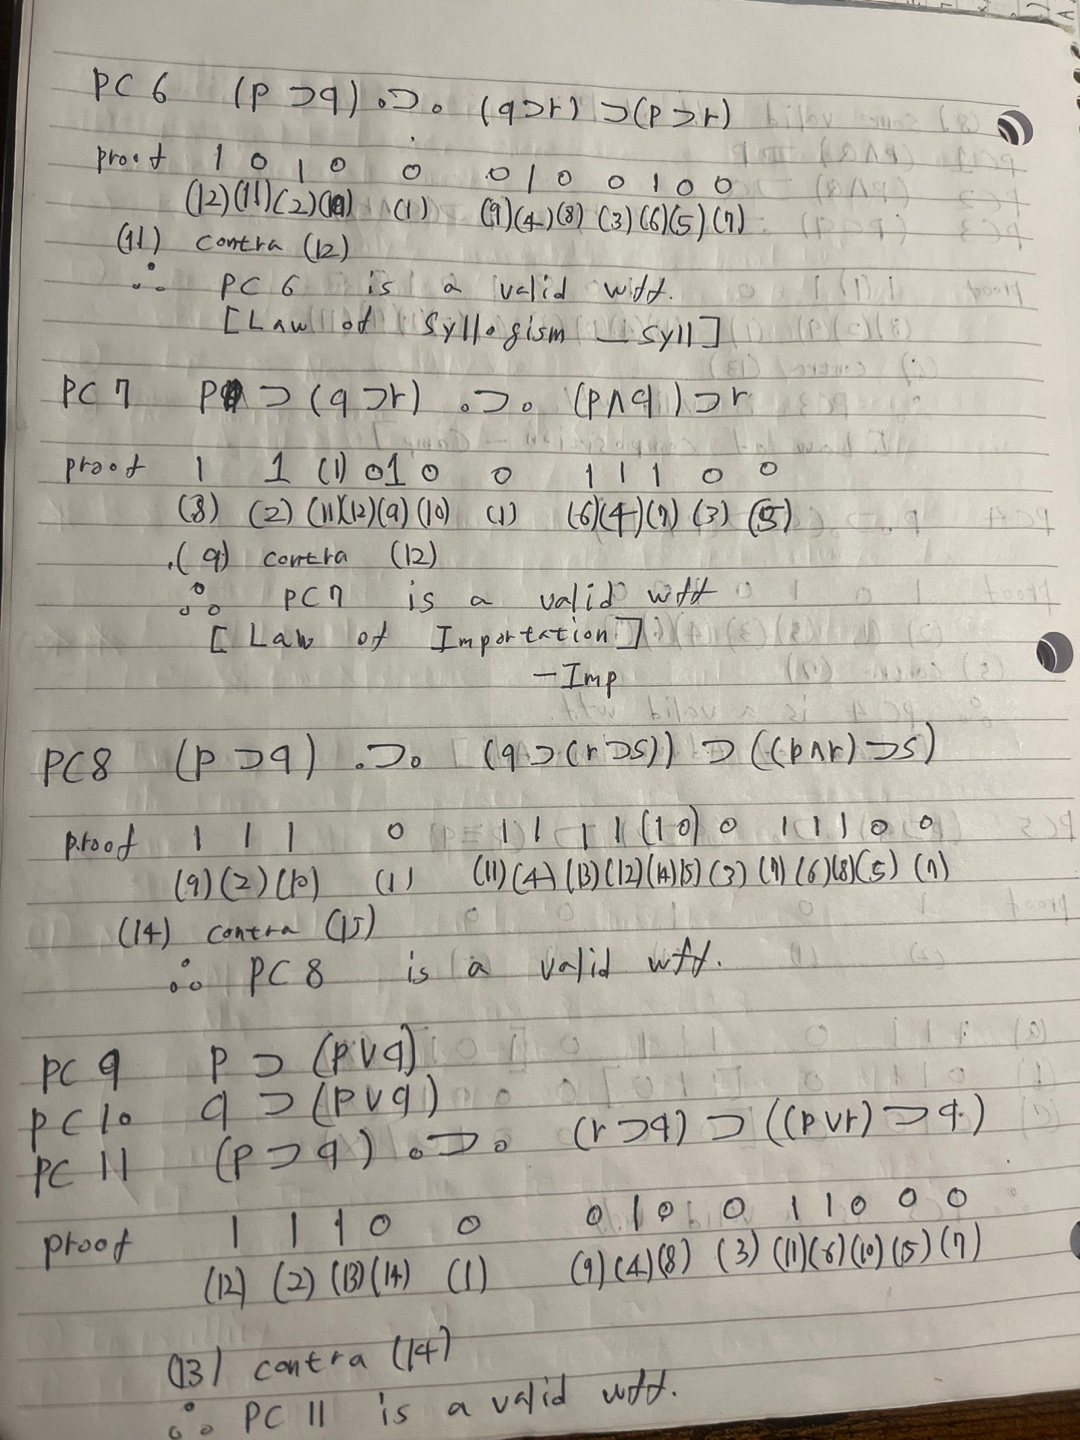 PC 6 (p ⊃ q) .⊃. (q ⊃ r) ⊃ (p ⊃ r)
proof 1 0 1 0 0 0 1 0 0 1 0 0
(12)(11)(2)(10) (1) (9)(4)(8) (3)(6)(5)(7)
(11) contra (12)
∴ PC 6 is a valid wff.
[Law of Syllogism — Syll]
PC 7 p ⊃ (q ⊃ r) .⊃. (p ∧ q) ⊃ r
proof 1 1 (1) 0 1 0 0 1 1 1 0 0
(8) (2) (11)(12)(9)(10) (1) (6)(4)(7) (3) (5)
(9) contra (12)
∴ PC7 is a valid wff
[Law of Importation]
— Imp
PC8 (p ⊃ q) .⊃. (q ⊃ (r ⊃ s)) ⊃ ((p ∧ r) ⊃ s)
proof 1 1 1 0 1 1 1 1 (1 0) 0 1 1 1 0 0
(9)(2)(10) (1) (11)(4)(13)(12)(14)(15)(3)(7)(6)(8)(5)(7)
(14) contra (15)
∴ PC 8 is a valid wff.
PC 9 p ⊃ (p ∨ q)
PC 10 q ⊃ (p ∨ q)
PC 11 (p ⊃ q) .⊃. (r ⊃ q) ⊃ ((p ∨ r) ⊃ q)
proof 1 1 1 0 0 0 1 0 0 1 1 0 0 0
(12) (2) (13)(14) (1) (9)(4)(8) (3) (11)(6)(10)(5)(7)
(13) contra (14)
∴ PC 11 is a valid wff.